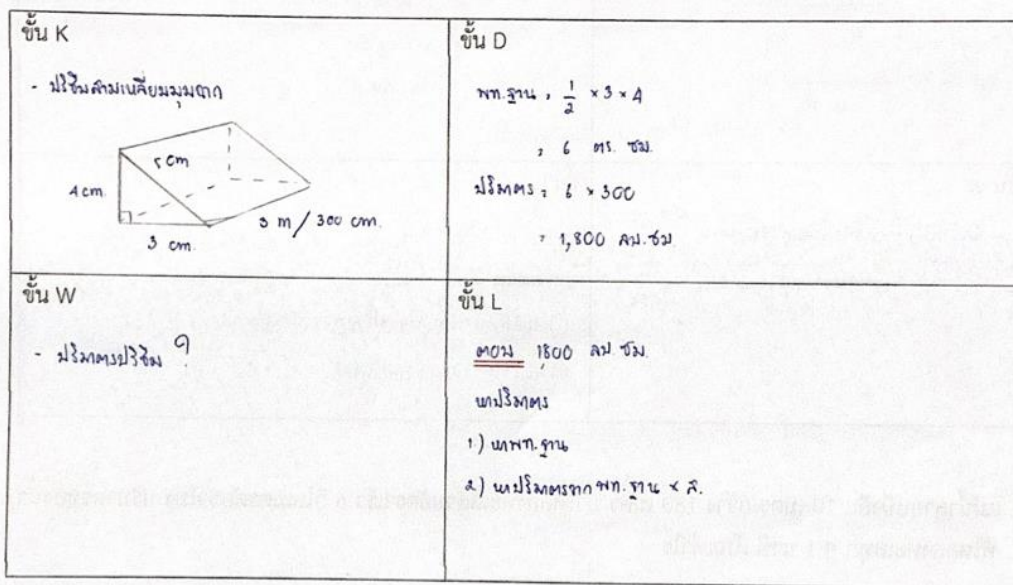 ขั้น K
- ปริซึมสามเหลี่ยมมุมฉาก
5 cm
4 cm.
3 cm.
3 m / 300 cm.
ขั้น D
พท.ฐาน = 1/2 × 3 × 4
= 6 ตร. ซม.
ปริมาตร = 6 × 300
= 1,800 ลบ.ซม
ขั้น W
- ปริมาตรปริซึม ?
ขั้น L
ตอบ 1800 ลบ. ซม.
หาปริมาตร
1.) หาพท.ฐาน
2.) หาปริมาตรจาก พท.ฐาน × ส.